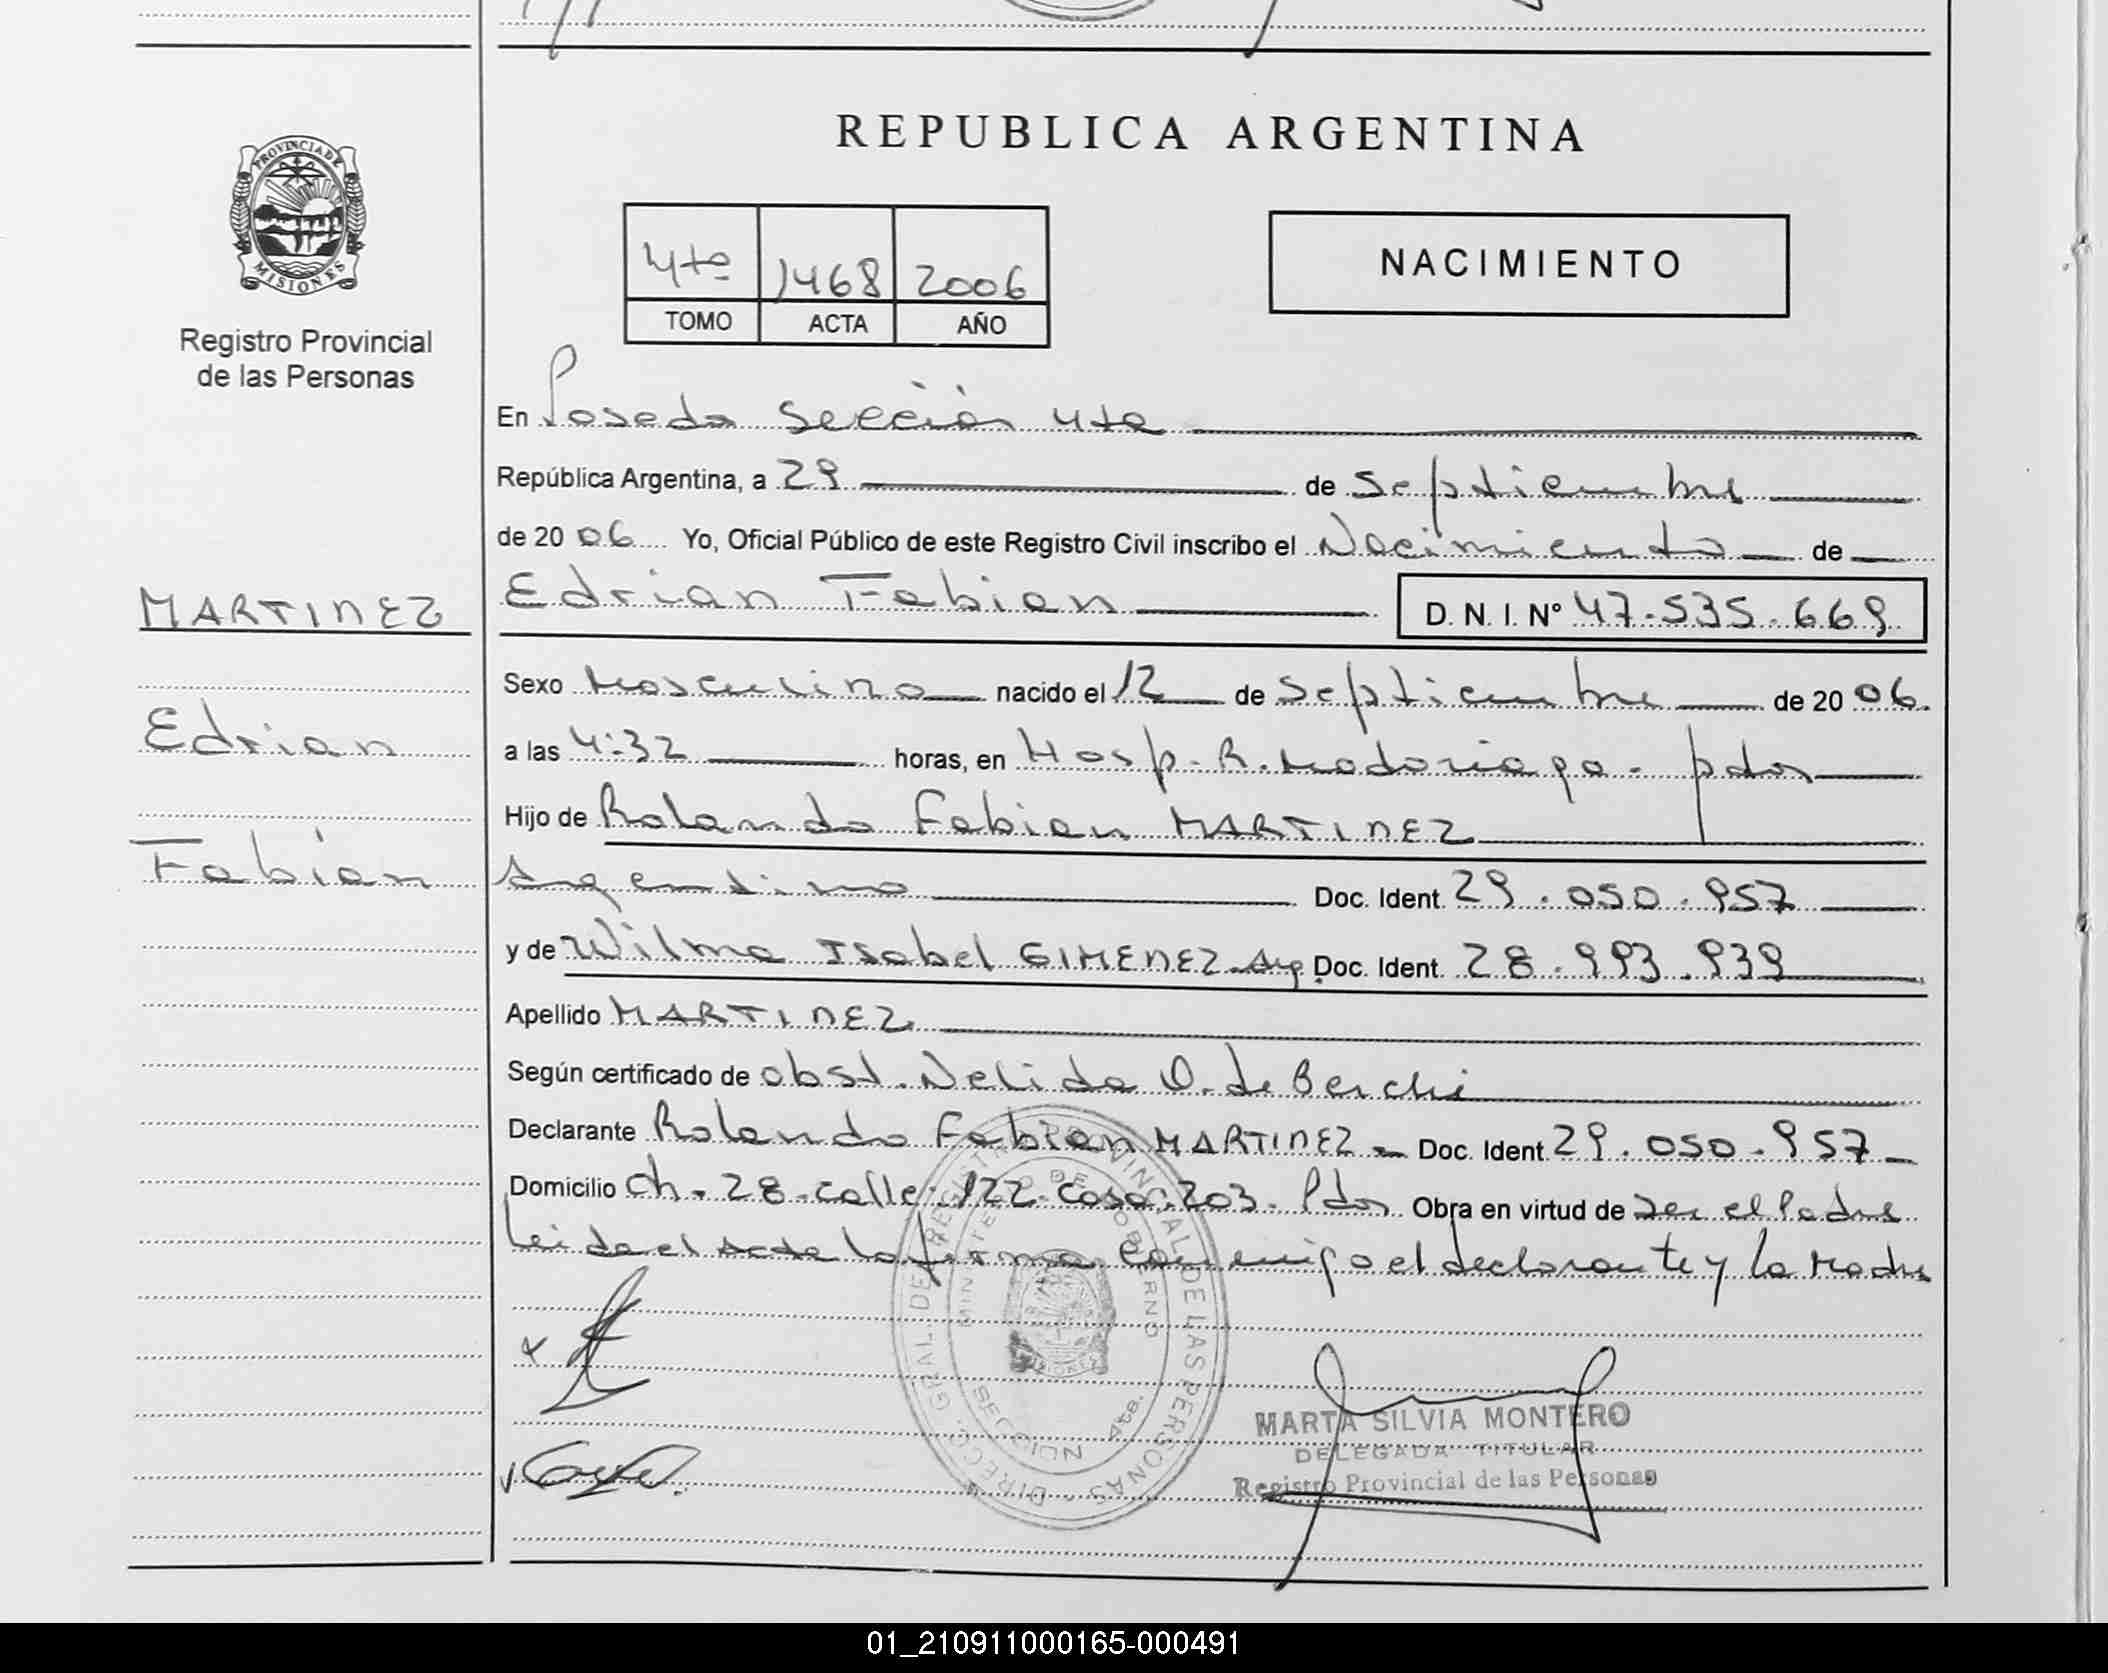 REPUBLICA ARGENTINA
PROVINCIA DE
MISIONES
Registro Provincial
de las Personas
4to 1468 2006
TOMO ACTA AÑO
NACIMIENTO
En Posadas Sección 4ta
República Argentina, a 29 de Septiembre
de 2006 Yo, Oficial Público de este Registro Civil inscribo el Nacimiento de
MARTINEZ
Edrian Fabian D. N. I. Nº 47.535.669
Sexo Masculino nacido el 12 de Septiembre de 2006.
Edrian
a las 4:32 horas, en Hosp. R. Madariaga - pdas
Hijo de Rolando Fabian MARTINEZ
Fabian
Argentino Doc. Ident. 29.050.957
y de Wilma Isabel GIMENEZ Arg. Doc. Ident. 28.993.939
Apellido MARTINEZ
Según certificado de obst. Nelida O. de Berchi
Declarante Rolando Fabian MARTINEZ - Doc. Ident. 29.050.957 -
Domicilio Ch. 28 - calle 122 - casa 203 - Pdas Obra en virtud de ser el Padre
Leida el Acta la firma conmigo el declarante y la Madre
DIRECC. GRAL. DE REGISTRO PROVINCIAL DE LAS PERSONAS
MINISTERIO DE GOBIERNO
MISIONES
SECCION 4ta.
MARTA SILVIA MONTERO
DELEGADA TITULAR
Registro Provincial de las Personas
01_210911000165-000491